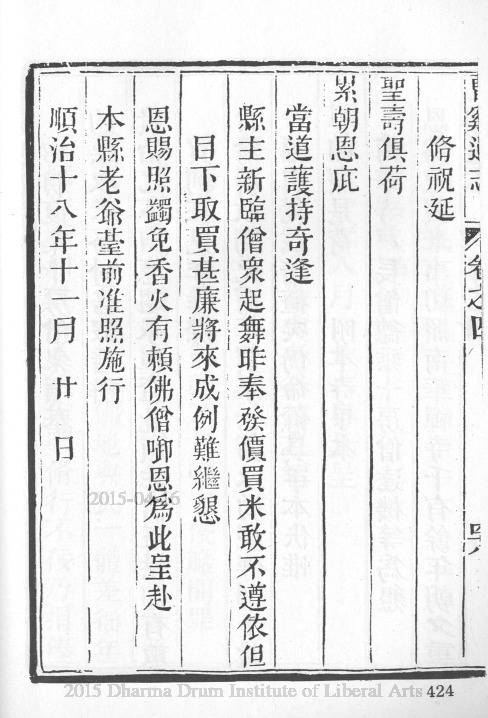 脩祝延
聖壽俱荷
累朝恩庇
當道護持奇逢
縣主新臨僧衆起舞昨奉發價買米敢不遵依但
目下取買甚廉將來成例難繼懇
恩賜照蠲免香火有賴佛僧啣恩爲此呈赴
本縣老爺臺前准照施行
順治十八年十一月廿日
卷之四
2015 Dharma Drum Institute of Liberal Arts
424